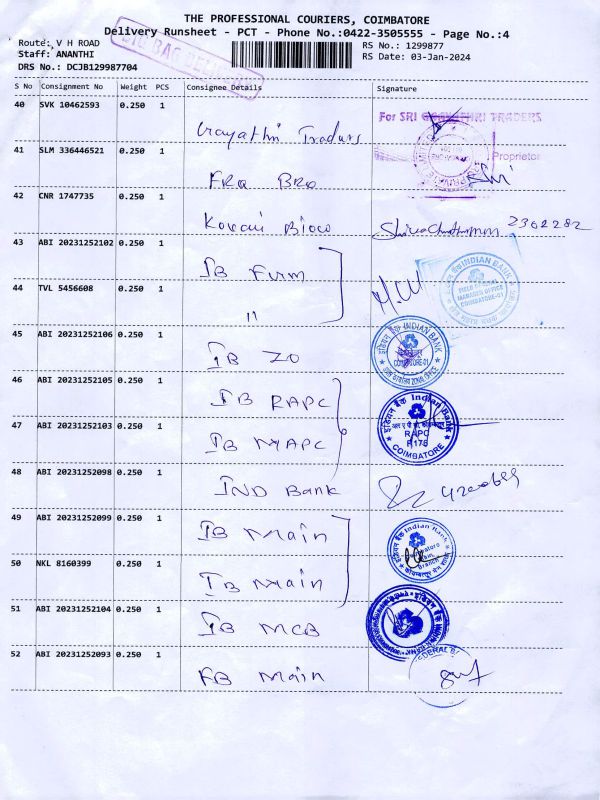 THE PROFESSIONAL COURIERS, COIMBATORE
Delivery Runsheet - PCT - Phone No.:0422-3505555 - Page No.:4
Route: V H ROAD
RS No.: 1299877
Staff: ANANTHI
RS Date: 03-Jan-2024
DRS No.: DCJB129987704
BIG BAG DELIVERY
S No Consignment No Weight PCS Consignee Details Signature
40 SVK 10462593 0.250 1 Gayathri Traders
For SRI GAYATHRI TRADERS
Proprietor
41 SLM 336446521 0.250 1 FRQ BRO
42 CNR 1747735 0.250 1 Kovai Bioco 2302282
43 ABI 20231252102 0.250 1 IB Furm
INDIAN BANK
MANAGER OFFICE
COIMBATORE-01
44 TVL 5456608 0.250 1 "
45 ABI 20231252106 0.250 1 IB ZO
इंडियन बैंक INDIAN BANK
COIMBATORE-01
ZONAL OFFICE
46 ABI 20231252105 0.250 1 IB RAPC
इंडियन बैंक Indian Bank
RAPC
R178
COIMBATORE
47 ABI 20231252103 0.250 1 IB MAPC
48 ABI 20231252098 0.250 1 IND Bank
49 ABI 20231252099 0.250 1 IB Main
इंडियन बैंक Indian Bank
50 NKL 8160399 0.250 1 IB Main
51 ABI 20231252104 0.250 1 IB MCB
52 ABI 20231252093 0.250 1 FB Main